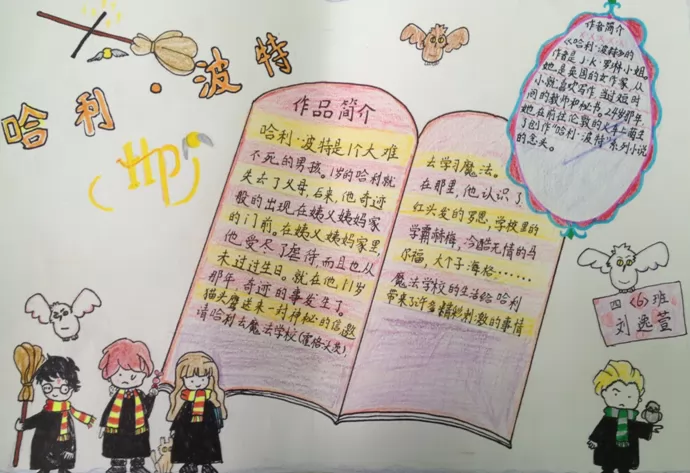 哈利·波特
HP
作品简介
哈利·波特是1个大难
不死的男孩。1岁的哈利就
失去了父母,后来,他奇迹
般的出现在姨父姨妈家
的门前。在姨父姨妈家里,
他受尽了虐待,而且也从
未过过生日。就在他11岁
那年,奇迹的事发生了。
猫头鹰送来一封神秘的信邀
请哈利去魔法学校(霍格沃茨)
去学习魔法。
在那里,他认识了
红头发的罗恩,学校里的
学霸赫梅,冷酷无情的马
尔福,大个子海格……
魔法学校的生活给哈利
带来了许多精彩刺激的事情
作者简介
《哈利·波特》的
作者是J·K·罗林小姐。
她是英国的女作家,从
小就喜欢写作,当过短时
间的教师和秘书。24岁那年
她在前往伦敦的火车上萌生
了创作"哈利·波特"系列小说
的念头。
四(6)班
刘逸萱